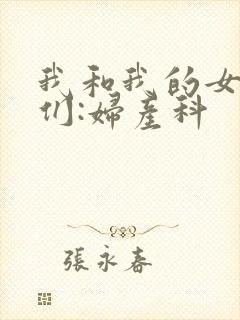 我和我的女
们:婦產科
張永春